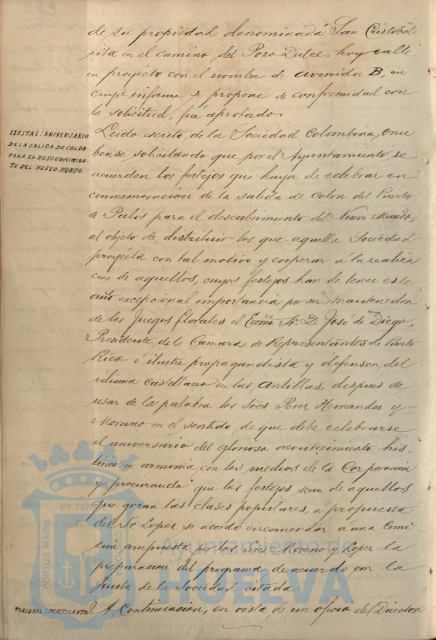 de su propiedad denominada San Cristobal
sita en el camino del Pozo Dulce, hoy calle
en proyecto con el nombre de avenida B, en
cuyo informe se propone de conformidad con
la solicitud, fué aprobado.
FIESTAS: ANIVERSARIO
DE LA SALIDA DE COLON
PARA EL DESCUBRIMIEN-
TO DEL NUEVO MUNDO.
Leido escrito de la Sociedad Colombina, Onu
bense solicitando que por el Ayuntamiento se
acuerden los festejos que haya de celebrar en
conmemoracion de la salida de Colon del Puerto
de Palos para el descubrimiento del Nuevo Mundo,
al objeto de distribuir los que aquella Sociedad
proyecta con tal motivo y cooperar a la realiza
cion de aquellos, cuyos festejos han de tener este
año excepcional importancia por ser mantenedor
de los Juegos florales el Excmo. Sr. D. José de Diego,
Presidente de la Camara de Representantes de Puerto
Rico é ilustre propagandista y defensor del
idioma castellano en las Antillas, despues de
usar de la palabra los Sres Perez Hernandez y
Moreno en el sentido de que debe celebrarse
el aniversario del glorioso acontecimiento his
tórico en armonia con los medios de la Corporacion
y procurando que los festejos sean de aquellos
que gozan las clases populares, a propuesta
del Sr. Lopez se acordó encomendar a una Comi
sion compuesta por los Sres Moreno y Lopez la
preparacion del programa de acuerdo con la
Junta de la Sociedad citada
PERSONAL: PRACTICANTE
A continuacion, en vista de un oficio del Director
Ayuntamiento de
HUELVA